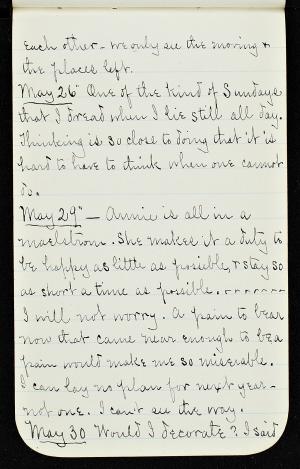 each other - we only see the moving &
the places left.
May 26" One of the kind of Sundays
that I dread when I lie still all day.
Thinking is so close to doing that it is
hard to have to think when one cannot
do.
May 29" - Annie is all in a
maelstrom. She makes it a duty to
be happy as little as possible, & stay so
as short a time as possible. - - - - - - -
I will not worry. A pain to bear
now that came near enough to be a
pain would make me so miserable.
I can lay no plan for next year -
not one. I can't see the way.
May 30 Would I decorate? I said